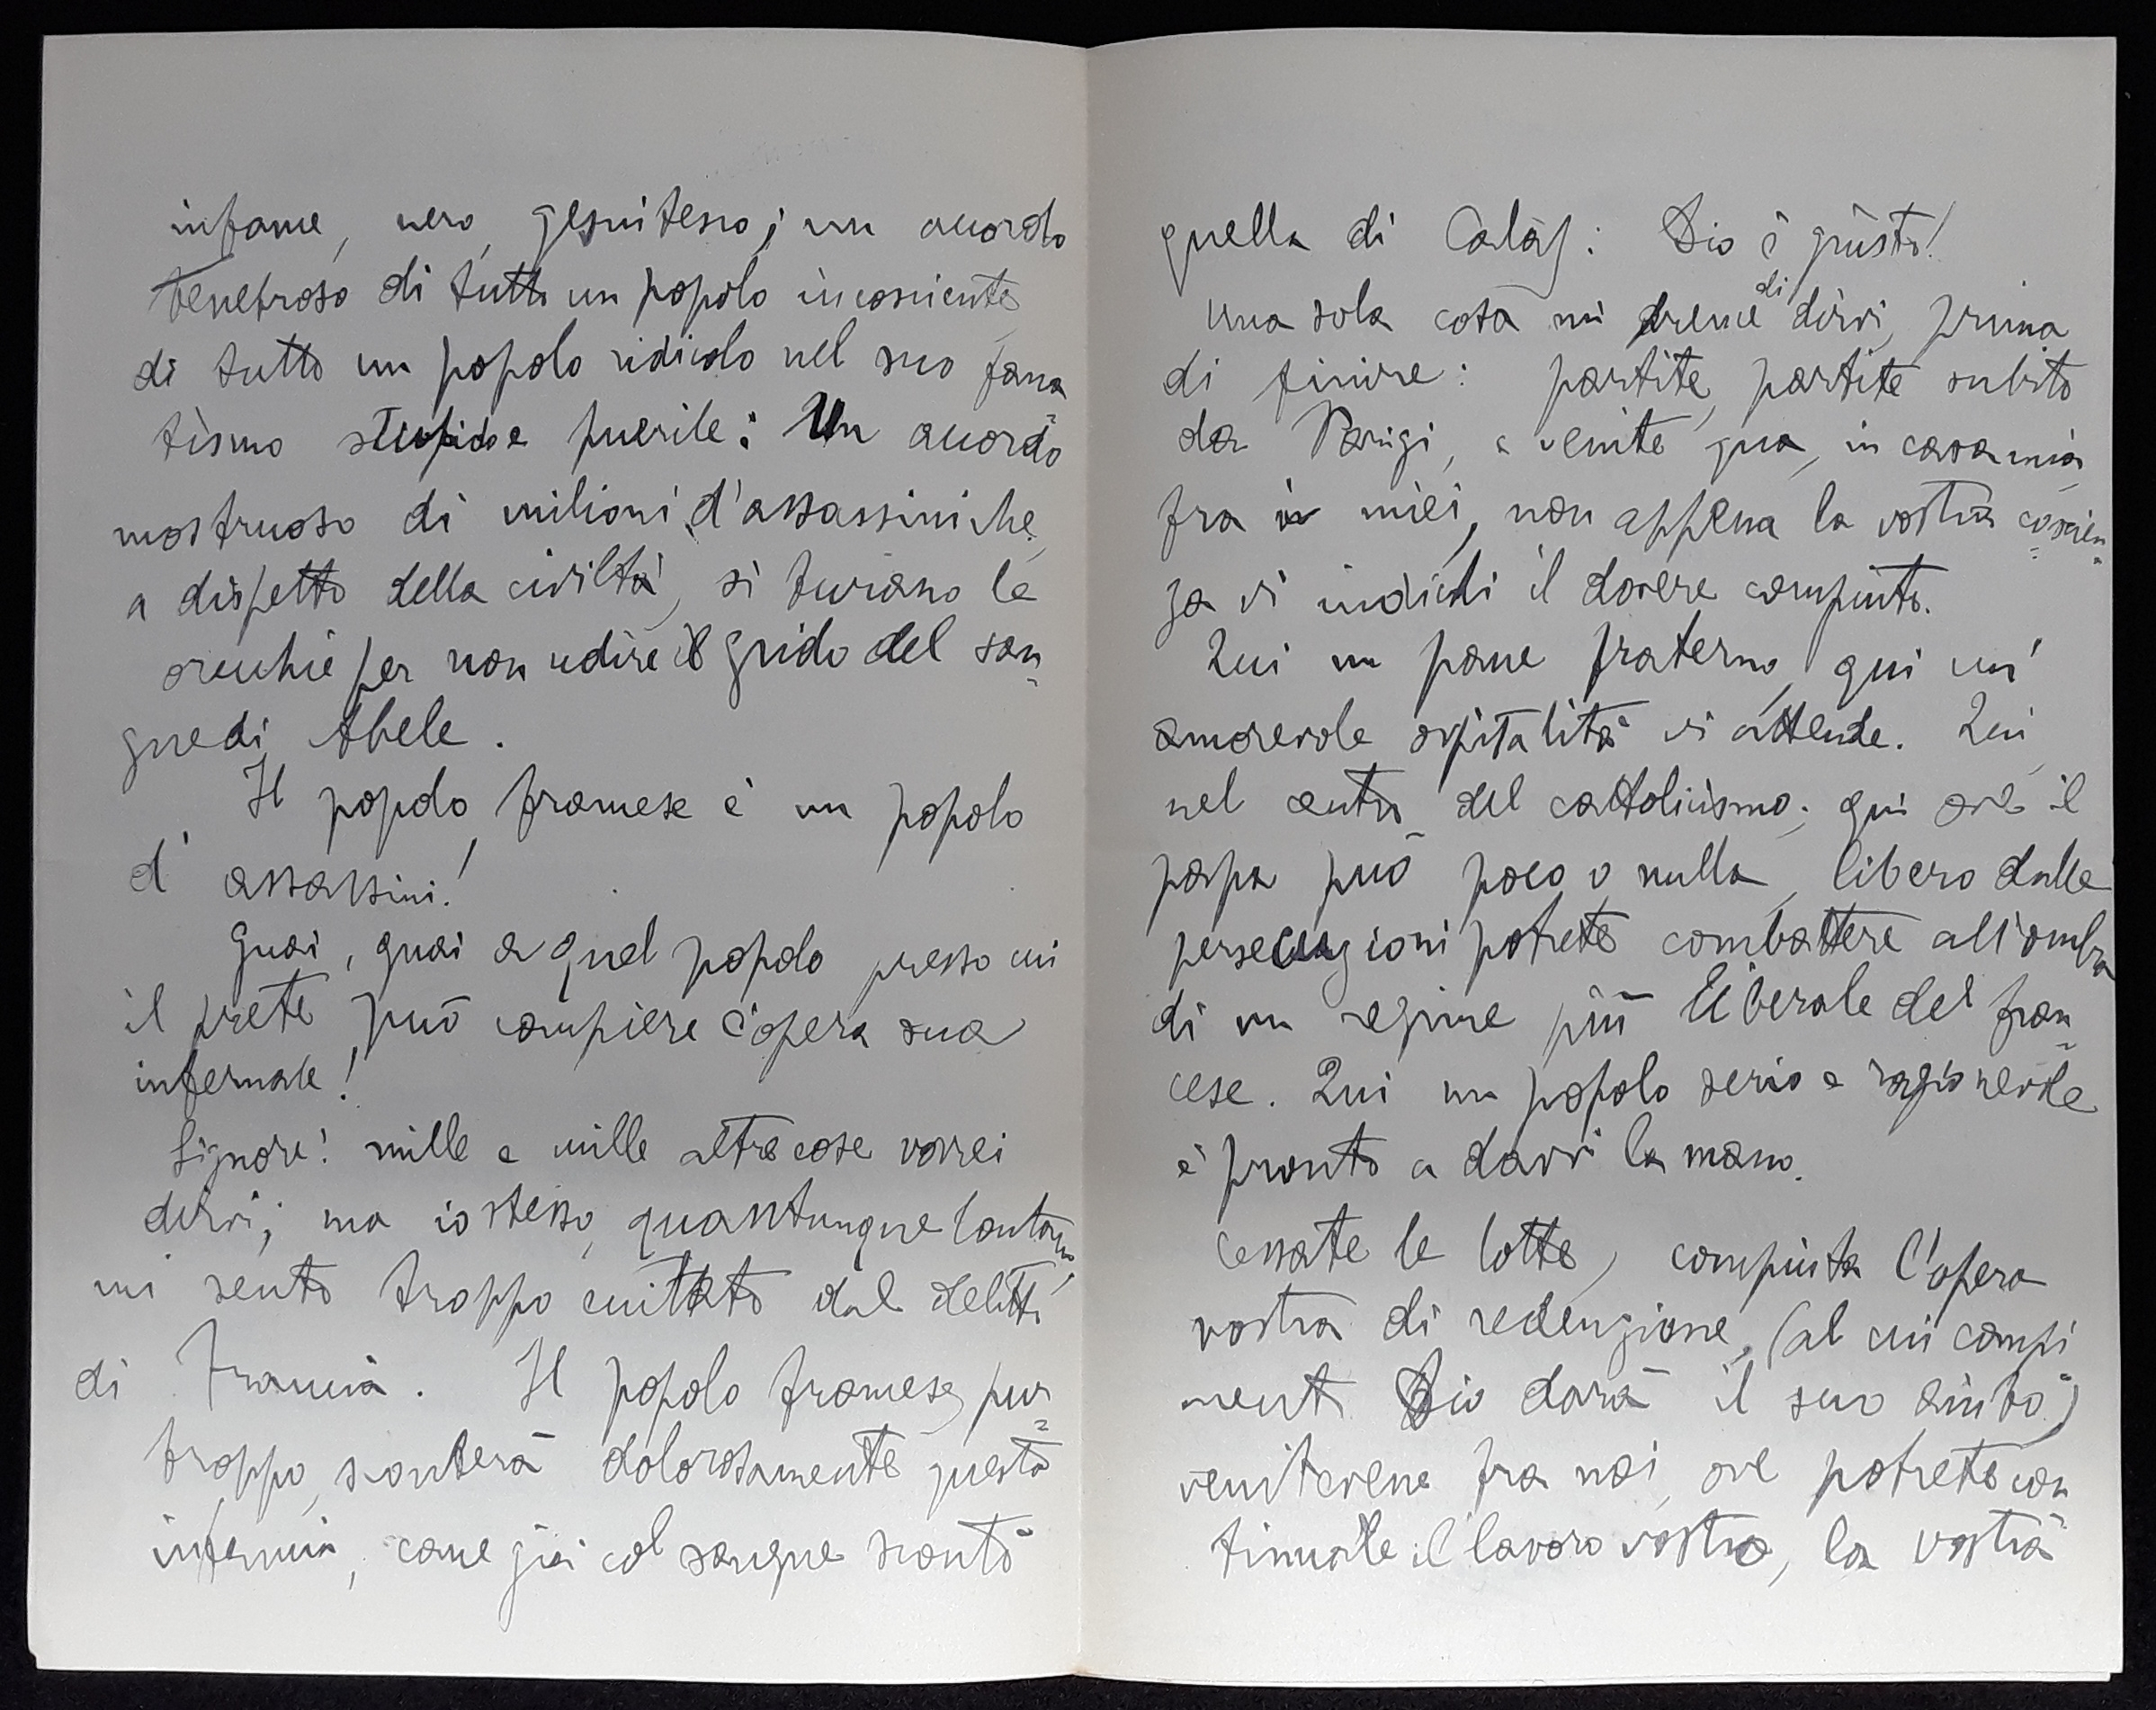 infame, nero, gesuitesco; un accordo
tenebroso di tutto un popolo incosciente
di tutto un popolo ridicolo nel suo fana
tismo stupido e puerile: Un accordo
mostruoso di milioni d'assassini che,
a dispetto della civiltà, si turano le
orecchie per non udire il grido del san-
gue di Abele.
Il popolo francese è un popolo
d'assassini!
Guai, guai a quel popolo presso cui
il prete può compiere l'opera sua
infernale!
Signore! mille e mille altre cose vorrei
dirvi; ma io stesso, quantunque lontano,
mi sento troppo eccitato dal delitto
di Francia. Il popolo francese, pur=
troppo, sconterà dolorosamente questa
infamia, come già col sangue scontò
quella di Calas: Dio è giusto!
Una sola cosa mi preme di dirvi, prima
di finire: partite, partite subito
da Parigi, e venite qua, in casa mia,
fra i miei, non appena la vostra coscien=
za vi indichi il dovere compiuto.
Qui un pane fraterno, qui un'
amorevole ospitalità vi attende. Qui,
nel centro del cattolicismo; qui ove il
papa può poco o nulla, libero dalle
persecuzioni potrete combattere all'ombra
di un regime più liberale del fran=
cese. Qui un popolo serio e ragionevole
è pronto a darvi la mano.
Cessate le lotte, compiuta l'opera
vostra di redenzione, (al cui compi
ment Dio darà il suo aiuto)
venitevene fra noi, ove potrete con
tinuare il lavoro vostro, la vostra